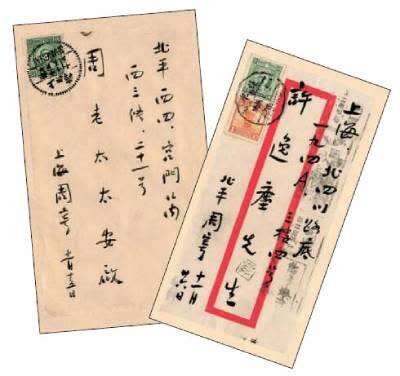 北平西四，宫門口内
西三條，二十一号
周老太太安啟
上海周寄 月十五日
上海，北四川路底
一九四A 三楼四号
許逸塵先生
北平周寄 十一月